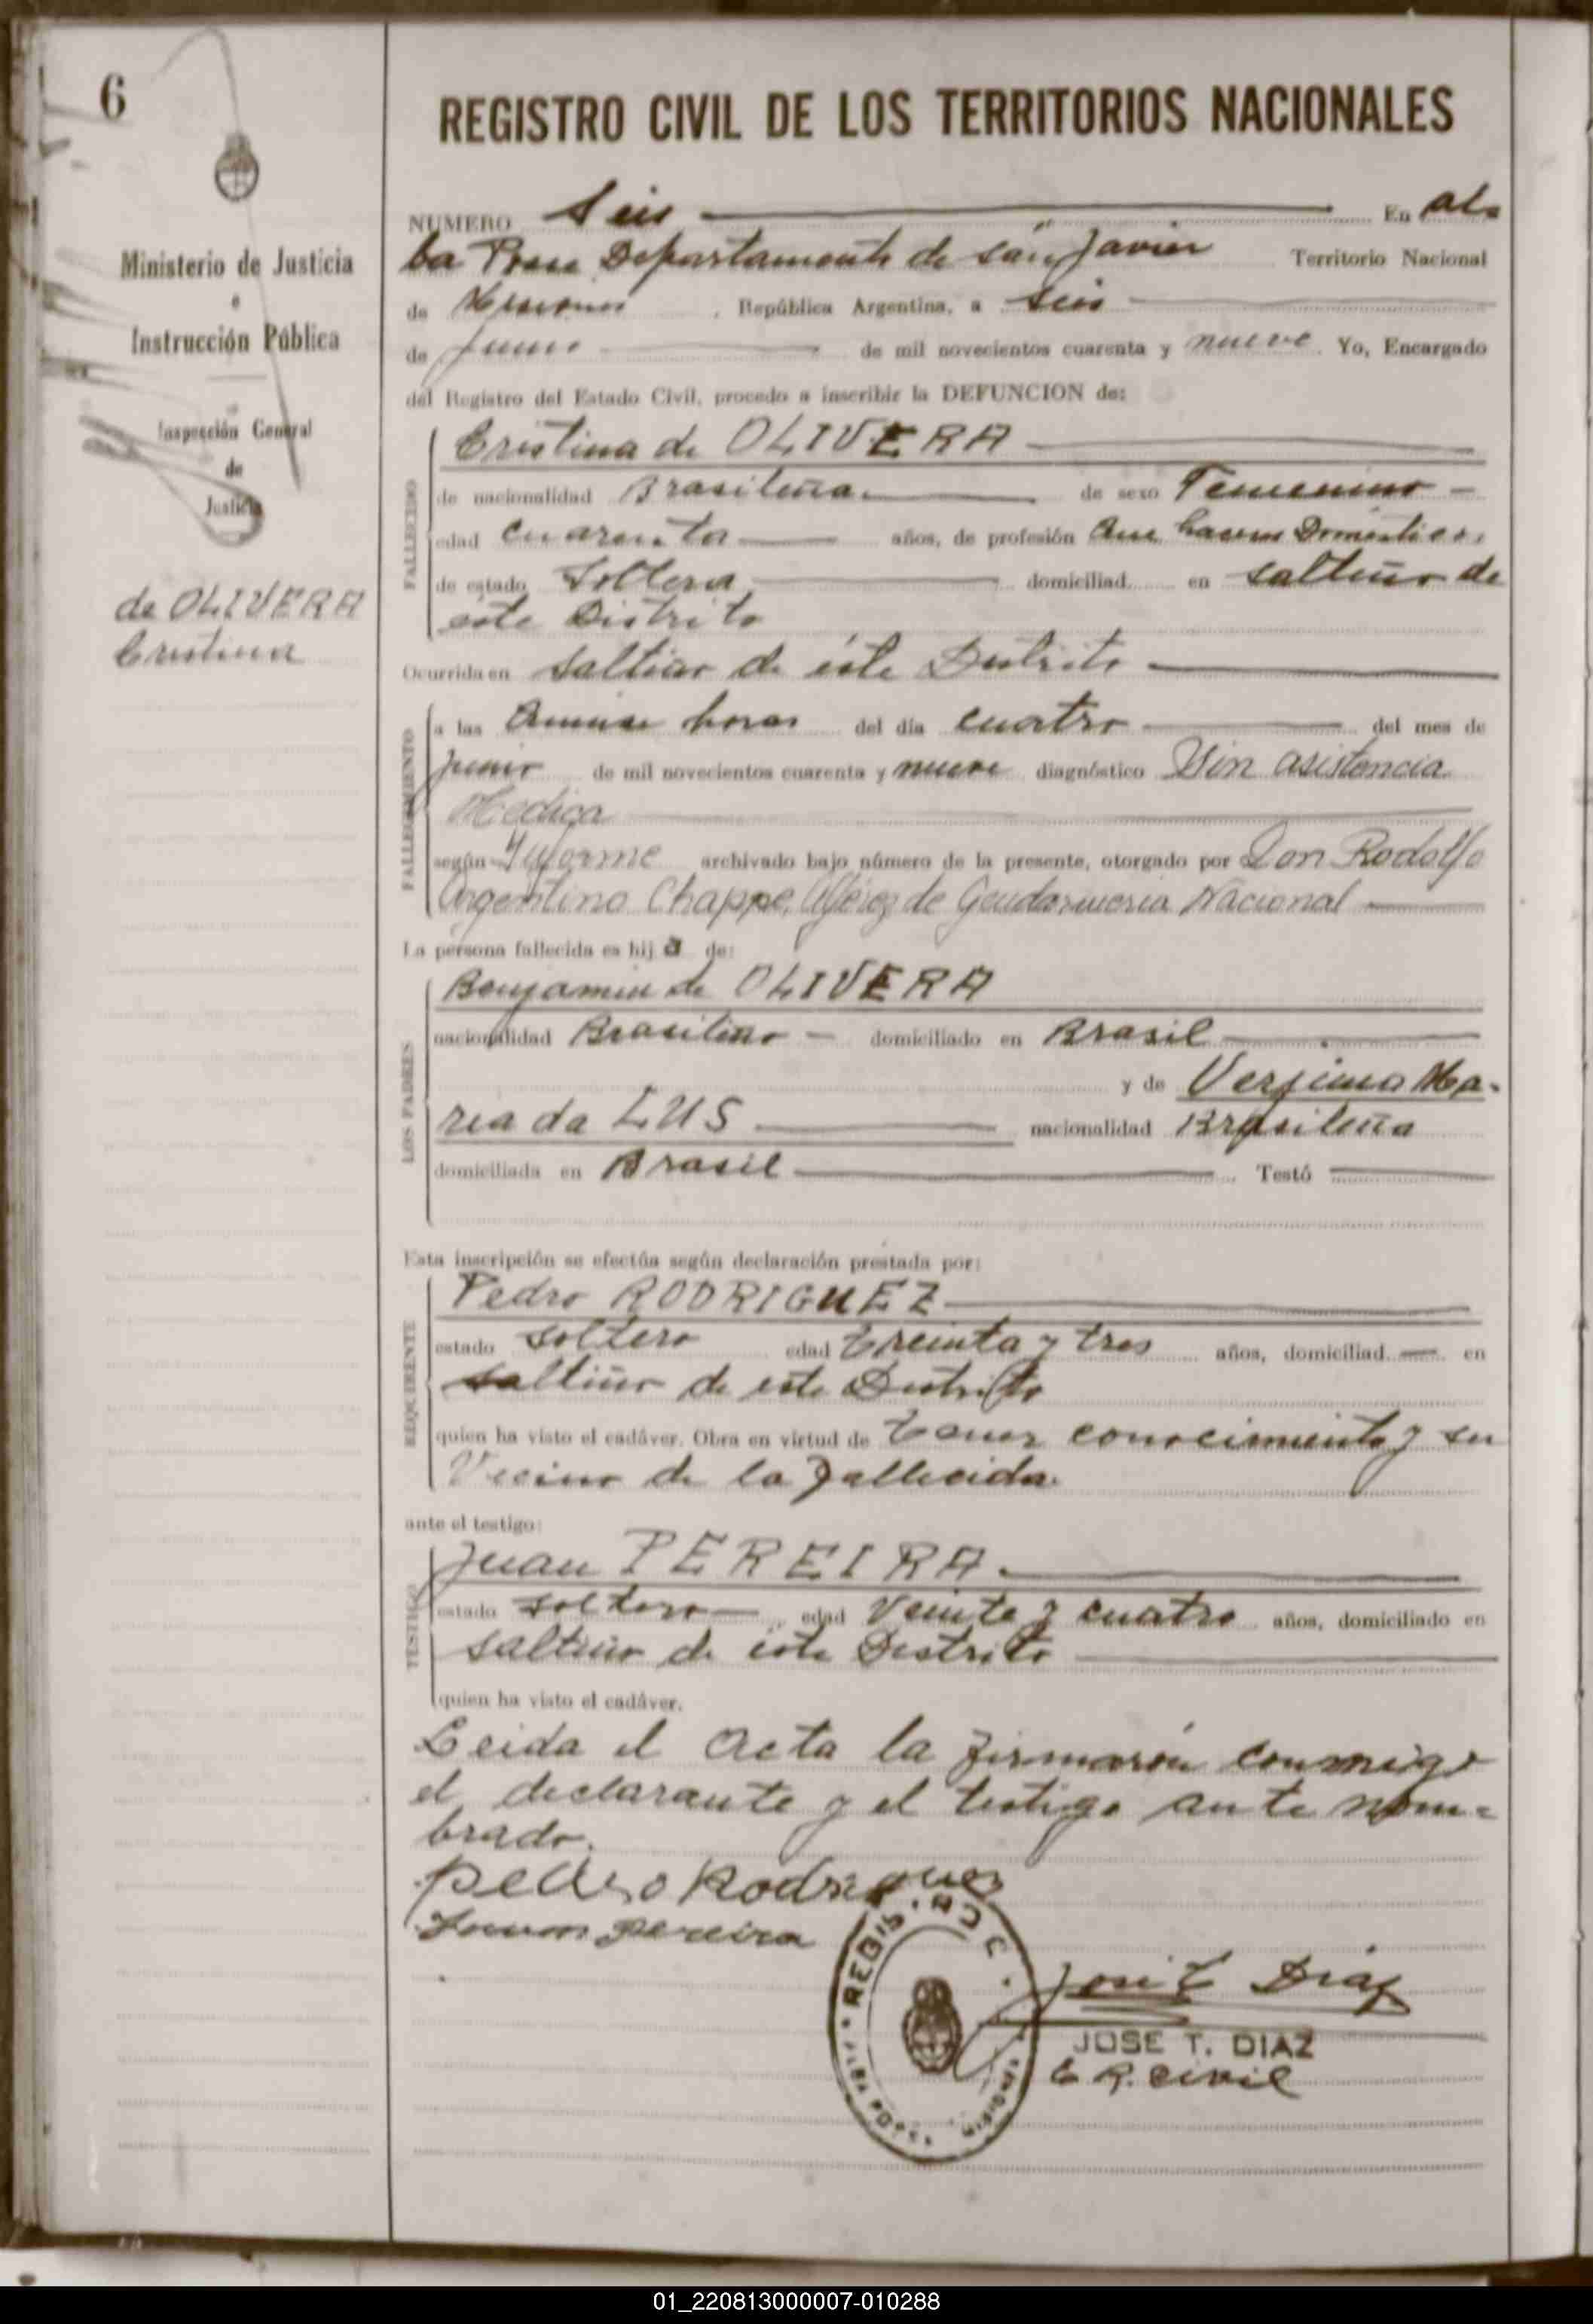 6
Ministerio de Justicia
e
Instrucción Pública
Inspección General
de
Justicia
de OLIVERA
Cristina
REGISTRO CIVIL DE LOS TERRITORIOS NACIONALES
NUMERO Seis En Al=
ba Posse Departamento de San Javier Territorio Nacional
de Misiones, República Argentina, a seis
de Junio de mil novecientos cuarenta y nueve. Yo, Encargado
del Registro del Estado Civil, procedo a inscribir la DEFUNCION de:
FALLECIDO
Cristina de OLIVERA
de nacionalidad Brasileña de sexo Femenino
edad cuarenta años, de profesión Que haceres Domesticos
de estado Soltera domiciliad en Salteño de
este Distrito
Ocurrida en Salteño de éste Distrito
FALLECIMIENTO
a las Quince horas del día cuatro del mes de
Junio de mil novecientos cuarenta y nueve diagnóstico Sin asistencia
Medica
según Informe archivado bajo número de la presente, otorgado por Don Rodolfo
Argentino Chappe, Alférez de Gendarmeria Nacional
La persona fallecida es hij a de:
LOS PADRES
Benjamin de OLIVERA
nacionalidad Brasileño domiciliado en Brasil
y de Verjinia Ma-
ria da LUS nacionalidad Brasileña
domiciliada en Brasil Testó
Esta inscripción se efectúa según declaración prestada por:
REQUIRENTE
Pedro RODRIGUEZ
estado soltero edad treinta y tres años, domiciliad en
Salteño de este Distrito
quien ha visto el cadáver. Obra en virtud de tener conocimiento y ser
Vecino de la fallecida.
ante el testigo:
TESTIGO
Juan PEREIRA.
estado soltero edad Veinte y cuatro años, domiciliado en
Salteño de éste Distrito
quien ha visto el cadáver.
Leida el Acta la firmarón conmigo
el declarante y el testigo ante nom=
brado.
Pedro Rodriguez
Juan Pereira
REGIS
ALBA POSSE MISIONES
José T Diaz
JOSE T. DIAZ
E R. Civil
01_220813000007-010288